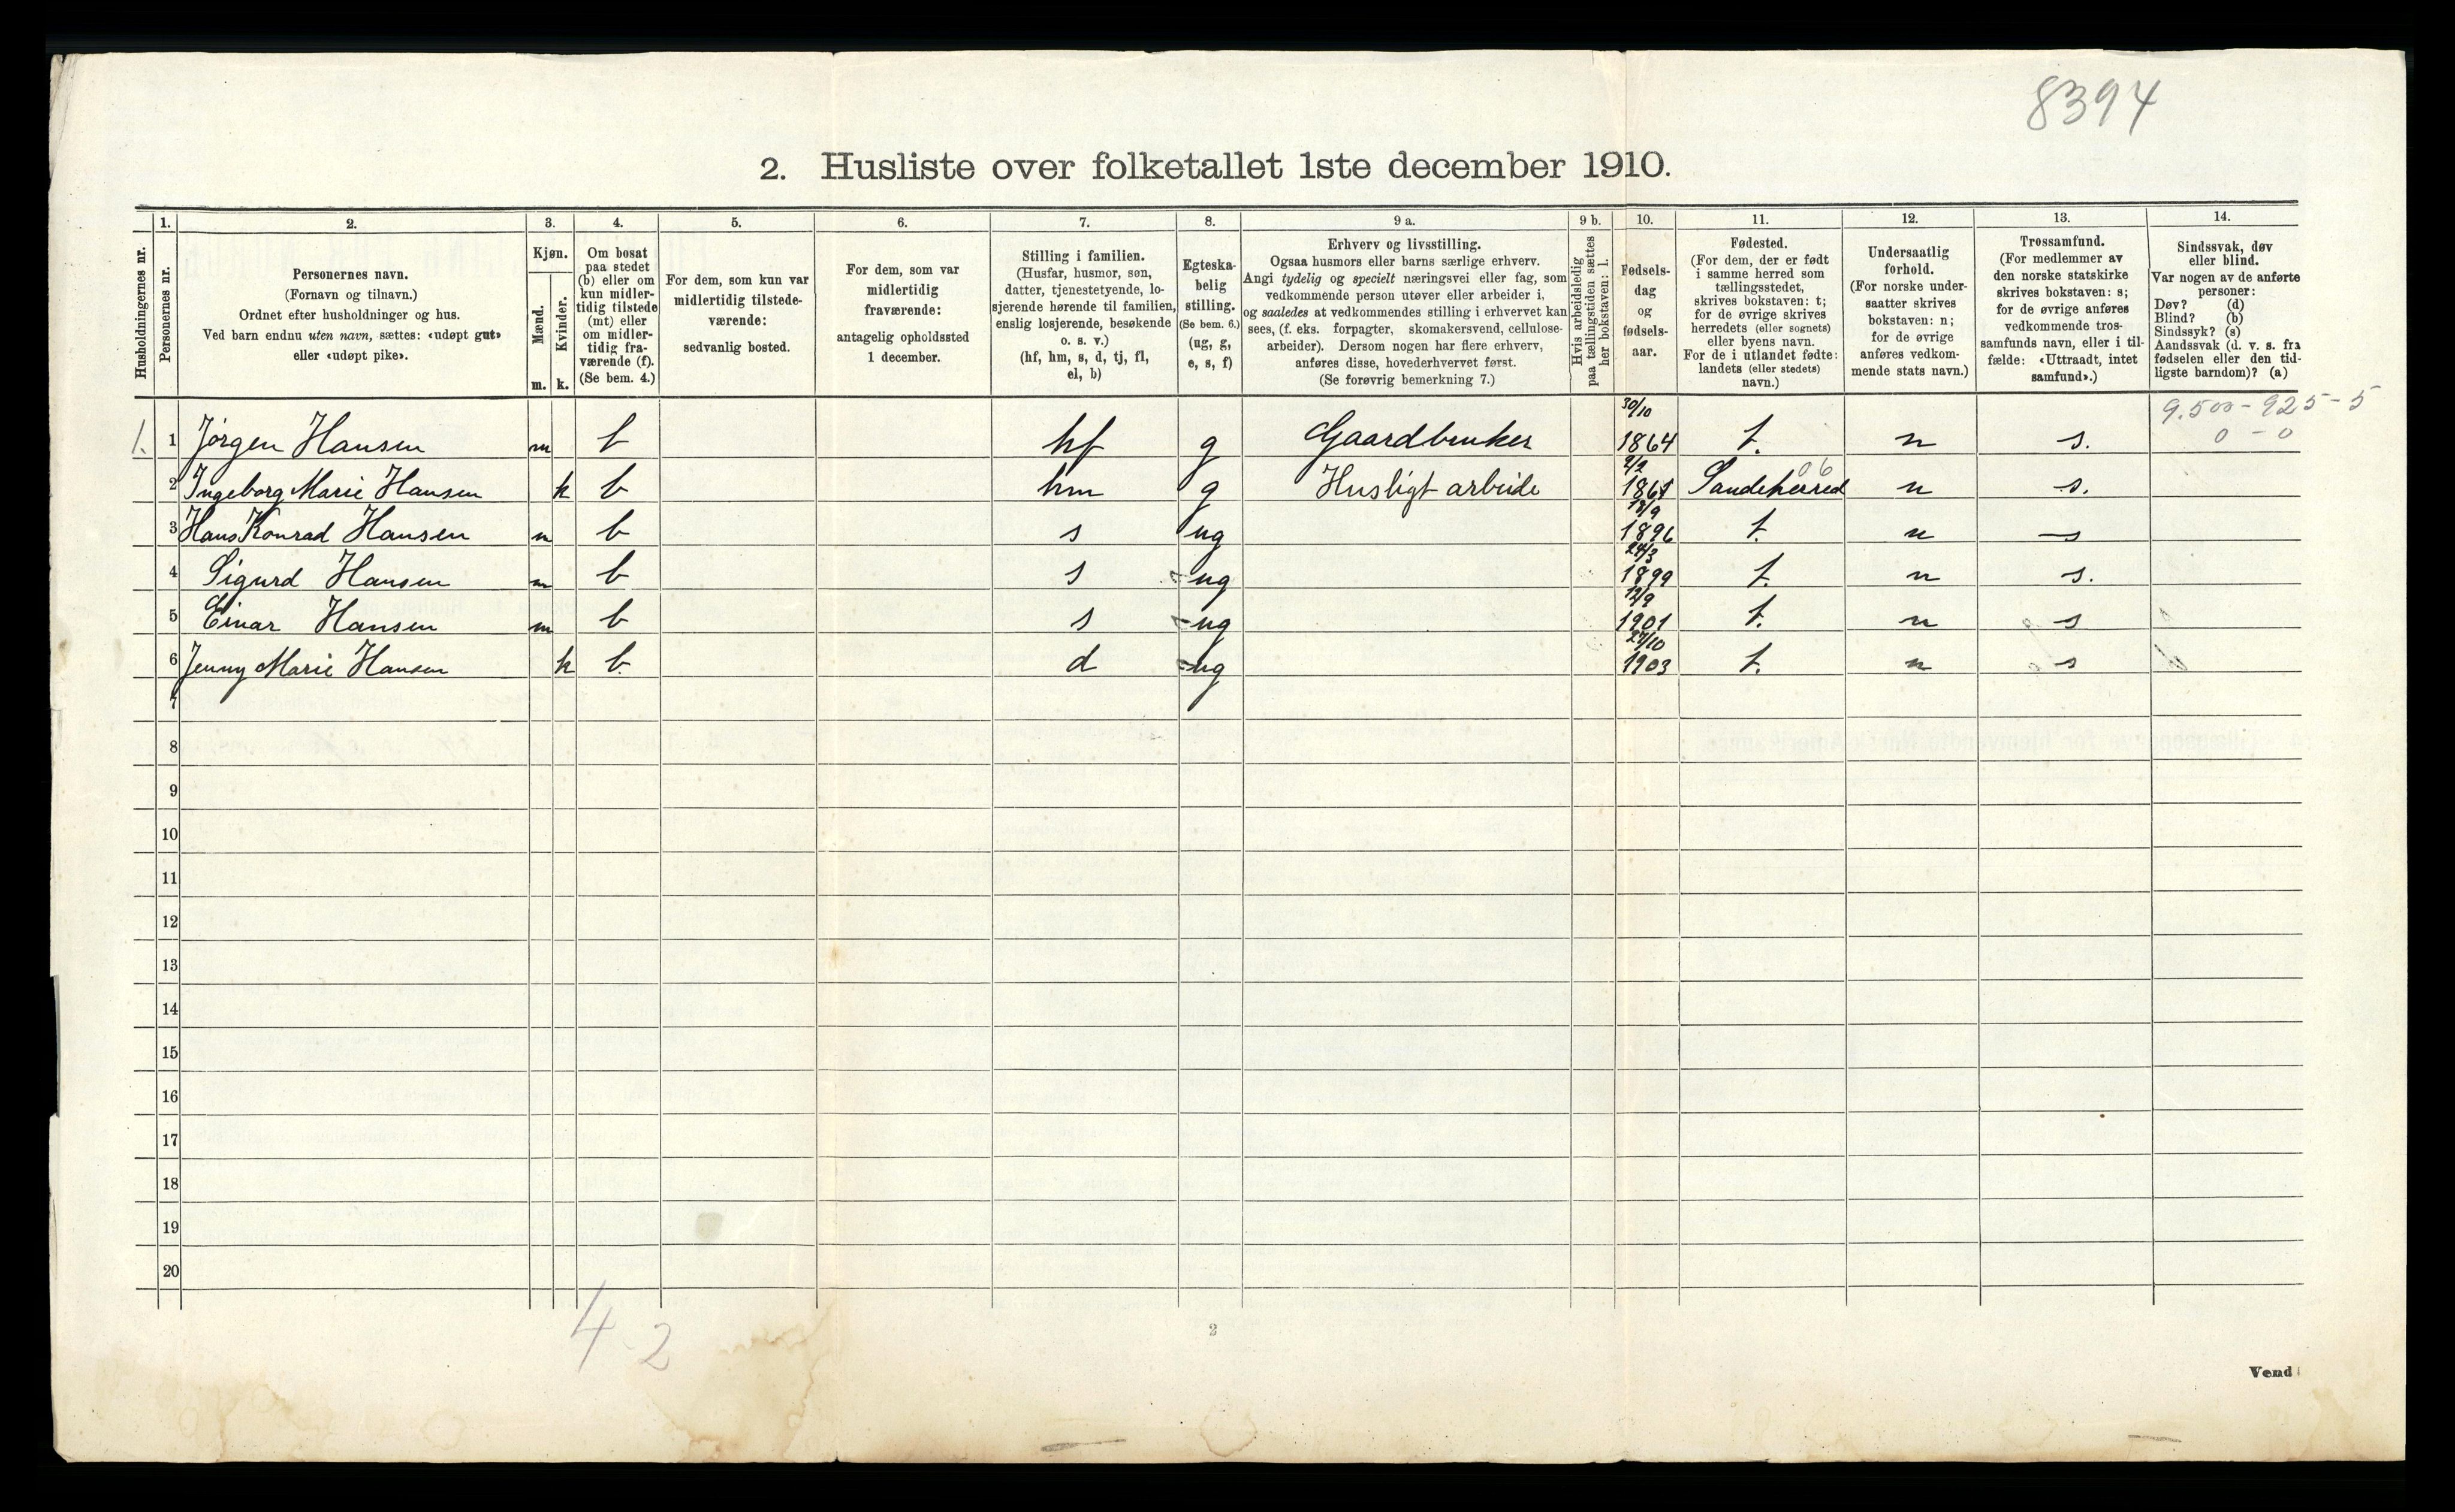 8394
2. Husliste over folketallet 1ste december 1910.
Husholdningernes nr.
1.
Personernes nr.
2.
Personernes navn.
(Fornavn og tilnavn.)
Ordnet efter husholdninger og hus.
Ved barn endnu uten navn, sættes: «udøpt gut»
eller «udøpt pike».
3.
Kjøn.
Mænd.
Kvinder.
m. k.
4.
Om bosat
paa stedet
(b) eller om
kun midler-
tidig tilstede
(mt) eller
om midler-
tidig fra-
værende (f).
(Se bem. 4.)
5.
For dem, som kun var
midlertidig tilstede-
værende:
sedvanlig bosted.
6.
For dem, som var
midlertidig
fraværende:
antagelig opholdssted
1 december.
7.
Stilling i familien.
(Husfar, husmor, søn,
datter, tjenestetyende, lo-
sjerende hørende til familien,
enslig losjerende, besøkende
o. s. v.)
(hf, hm, s, d, tj, fl,
el, b)
8.
Egteska-
belig
stilling.
(Se bem. 6.)
(ug, g,
e, s, f)
9 a.
Erhverv og livsstilling.
Ogsaa husmors eller barns særlige erhverv.
Angi tydelig og specielt næringsvei eller fag, som
vedkommende person utøver eller arbeider i,
og saaledes at vedkommendes stilling i erhvervet kan
sees, (f. eks. forpagter, skomakersvend, cellulose-
arbeider). Dersom nogen har flere erhverv,
anføres disse, hovederhvervet først.
(Se forøvrig bemerkning 7.)
9 b.
Hvis arbeidsledig
paa tællingstiden sættes
her bokstaven: l.
10.
Fødsels-
dag
og
fødsels-
aar.
11.
Fødested.
(For dem, der er født
i samme herred som
tællingsstedet,
skrives bokstaven: t;
for de øvrige skrives
herredets (eller sognets)
eller byens navn.
For de i utlandet fødte:
landets (eller stedets)
navn.)
12.
Undersaatlig
forhold.
(For norske under-
saatter skrives
bokstaven: n;
for de øvrige
anføres vedkom-
mende stats navn.)
13.
Trossamfund.
(For medlemmer av
den norske statskirke
skrives bokstaven: s;
for de øvrige anføres
vedkommende tros-
samfunds navn, eller i til-
fælde: «Uttraadt, intet
samfund».)
14.
Sindssvak, døv
eller blind.
Var nogen av de anførte
personer:
Døv? (d)
Blind? (b)
Sindssyk? (s)
Aandssvak (d. v. s. fra
fødselen eller den tid-
ligste barndom)? (a)
9.500 - 925 - 5
0 - 0
1. 1 Jørgen Hansen m b hf g Gaardbruker 30/10 1864 t. n s.
2 Ingeborg Marie Hansen k b hm g Husligt arbeide 2/2 1867 Sandeherred 06 n s.
3 Hans Konrad Hansen m b s ug 18/9 1896 t. n s
4 Sigurd Hansen m b s ug 24/3 1899 t. n s.
5 Einar Hansen m b s ug 12/9 1901 t. n s
6 Jenny Marie Hansen k b. d ug 27/10 1903 t. n s
7
8
9
10
11
12
13
14
15
16
17
18
19
20
4 - 2
2
Vend